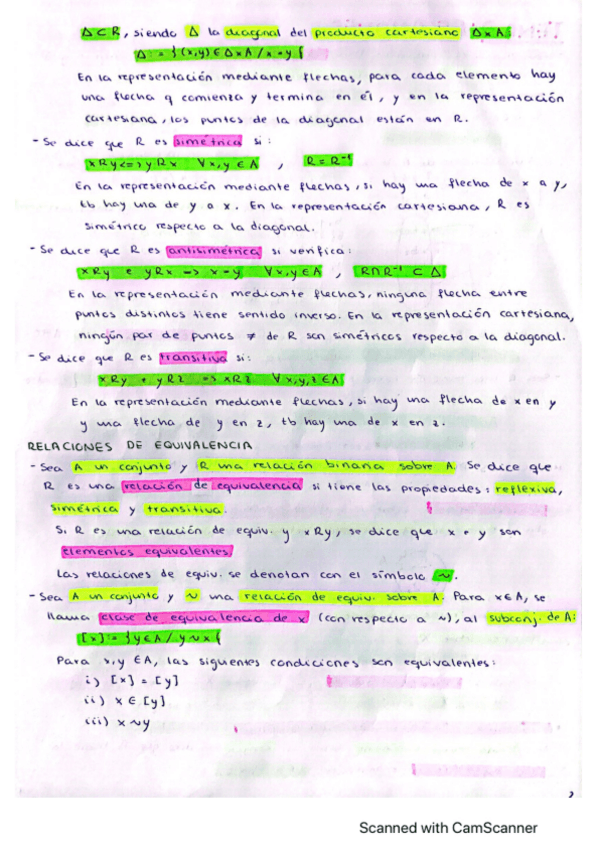 Δ ⊂ R, siendo Δ la diagonal del producto cartesiano Δ x A:
Δ := { (x,y) ∈ Δ x A / x = y {
En la representación mediante flechas, para cada elemento hay
una flecha q comienza y termina en él, y en la representación
cartesiana, los puntos de la diagonal están en R.
- Se dice que R es simétrica si:
x R y <=> y R x ∀x,y ∈ A , R = R⁻¹
En la representación mediante flechas, si hay una flecha de x a y,
tb hay una de y a x. En la representación cartesiana, R es
simétrico respecto a la diagonal.
- Se dice que R es antisimétrica si verifica:
x R y e y R x => x = y ∀x,y ∈ A , R ∩ R⁻¹ ⊂ Δ
En la representación mediante flechas, ninguna flecha entre
puntos distintos tiene sentido inverso. En la representación cartesiana,
ningún par de puntos ≠ de R son simétricos respecto a la diagonal.
- Se dice que R es transitiva si:
x R y e y R z => x R z ∀x,y,z ∈ A
En la representación mediante flechas, si hay una flecha de x en y
y una flecha de y en z, tb hay una de x en z.
RELACIONES DE EQUIVALENCIA
- Sea A un conjunto y R una relación binaria sobre A. Se dice que
R es una relación de equivalencia si tiene las propiedades: reflexiva,
simétrica y transitiva.
Si R es una relación de equiv. y x R y, se dice que x e y son
elementos equivalentes.
Las relaciones de equiv. se denotan con el símbolo ~.
- Sea A un conjunto y ~ una relación de equiv. sobre A. Para x ∈ A, se
llama clase de equivalencia de x (con respecto a ~), al subconj. de A:
[x] := } y ∈ A / y ~ x {
Para x,y ∈ A, las siguientes condiciones son equivalentes:
i) [x] = [y]
ii) x ∈ [y]
iii) x ~ y
Scanned with CamScanner